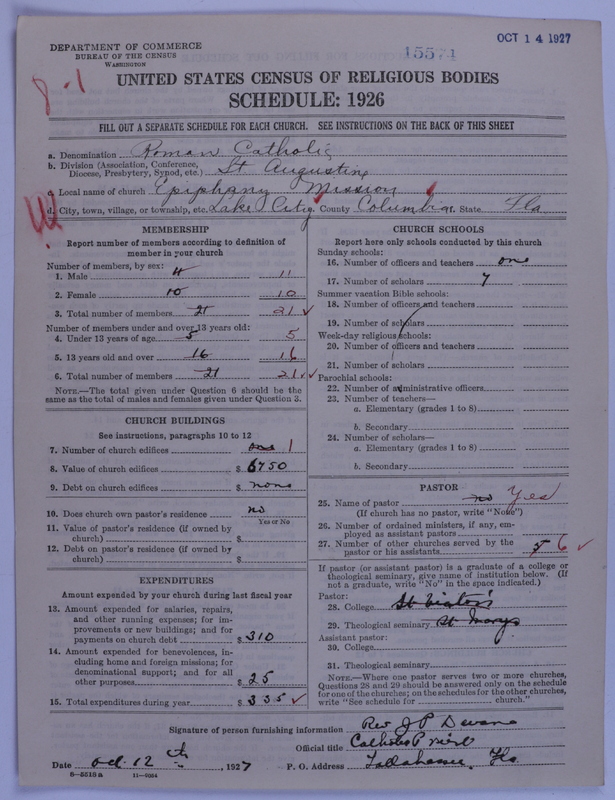 DEPARTMENT OF COMMERCE
BUREAU OF THE CENSUS
WASHINGTON
15574
OCT 14 1927
8-1
UNITED STATES CENSUS OF RELIGIOUS BODIES
SCHEDULE: 1926
FILL OUT A SEPARATE SCHEDULE FOR EACH CHURCH. SEE INSTRUCTIONS ON THE BACK OF THIS SHEET
a. Denomination Roman Catholic
b. Division (Association, Conference,
Diocese, Presbytery, Synod, etc.) St Augustine
c. Local name of church Epiphany Mission
d. City, town, village, or township, etc. Lake City County Columbia State Fla
MEMBERSHIP
Report number of members according to definition of
member in your church
Number of members, by sex:
1. Male 11
2. Female 10 10
3. Total number of members 21 21
Number of members under and over 13 years old:
4. Under 13 years of age 5 5
5. 13 years old and over 16 16
6. Total number of members 21 21
NOTE.—The total given under Question 6 should be the
same as the total of males and females given under Question 3.
CHURCH BUILDINGS
See instructions, paragraphs 10 to 12
7. Number of church edifices one 1
8. Value of church edifices $ 6750
9. Debt on church edifices $ none
10. Does church own pastor's residence no
Yes or No
11. Value of pastor's residence (if owned by
church) $
12. Debt on pastor's residence (if owned by
church) $
EXPENDITURES
Amount expended by your church during last fiscal year
13. Amount expended for salaries, repairs,
and other running expenses; for im-
provements or new buildings; and for
payments on church debt $ 310
14. Amount expended for benevolences, in-
cluding home and foreign missions; for
denominational support; and for all
other purposes $ 25
15. Total expenditures during year $ 335
CHURCH SCHOOLS
Report here only schools conducted by this church
Sunday schools:
16. Number of officers and teachers one
17. Number of scholars 7
Summer vacation Bible schools:
18. Number of officers and teachers
19. Number of scholars
Week-day religious schools:
20. Number of officers and teachers
21. Number of scholars
Parochial schools:
22. Number of administrative officers
23. Number of teachers—
a. Elementary (grades 1 to 8)
b. Secondary
24. Number of scholars—
a. Elementary (grades 1 to 8)
b. Secondary
PASTOR
25. Name of pastor no Yes
(If church has no pastor, write "None")
26. Number of ordained ministers, if any, em-
ployed as assistant pastors
27. Number of other churches served by the
pastor or his assistants 5 6
If pastor (or assistant pastor) is a graduate of a college or
theological seminary, give name of institution below. (If
not a graduate, write "No" in the space indicated.)
Pastor:
28. College St Viator's
29. Theological seminary St Marys
Assistant pastor:
30. College
31. Theological seminary
NOTE.—Where one pastor serves two or more churches,
Questions 28 and 29 should be answered only on the schedule
for one of the churches; on the schedules for the other churches,
write "See schedule for church."
Signature of person furnishing information Rev J P
Official title Catholic Priest
Date Oct 12th, 1927 P. O. Address Tallahassee, Fla.
8—5518 a 11—9364